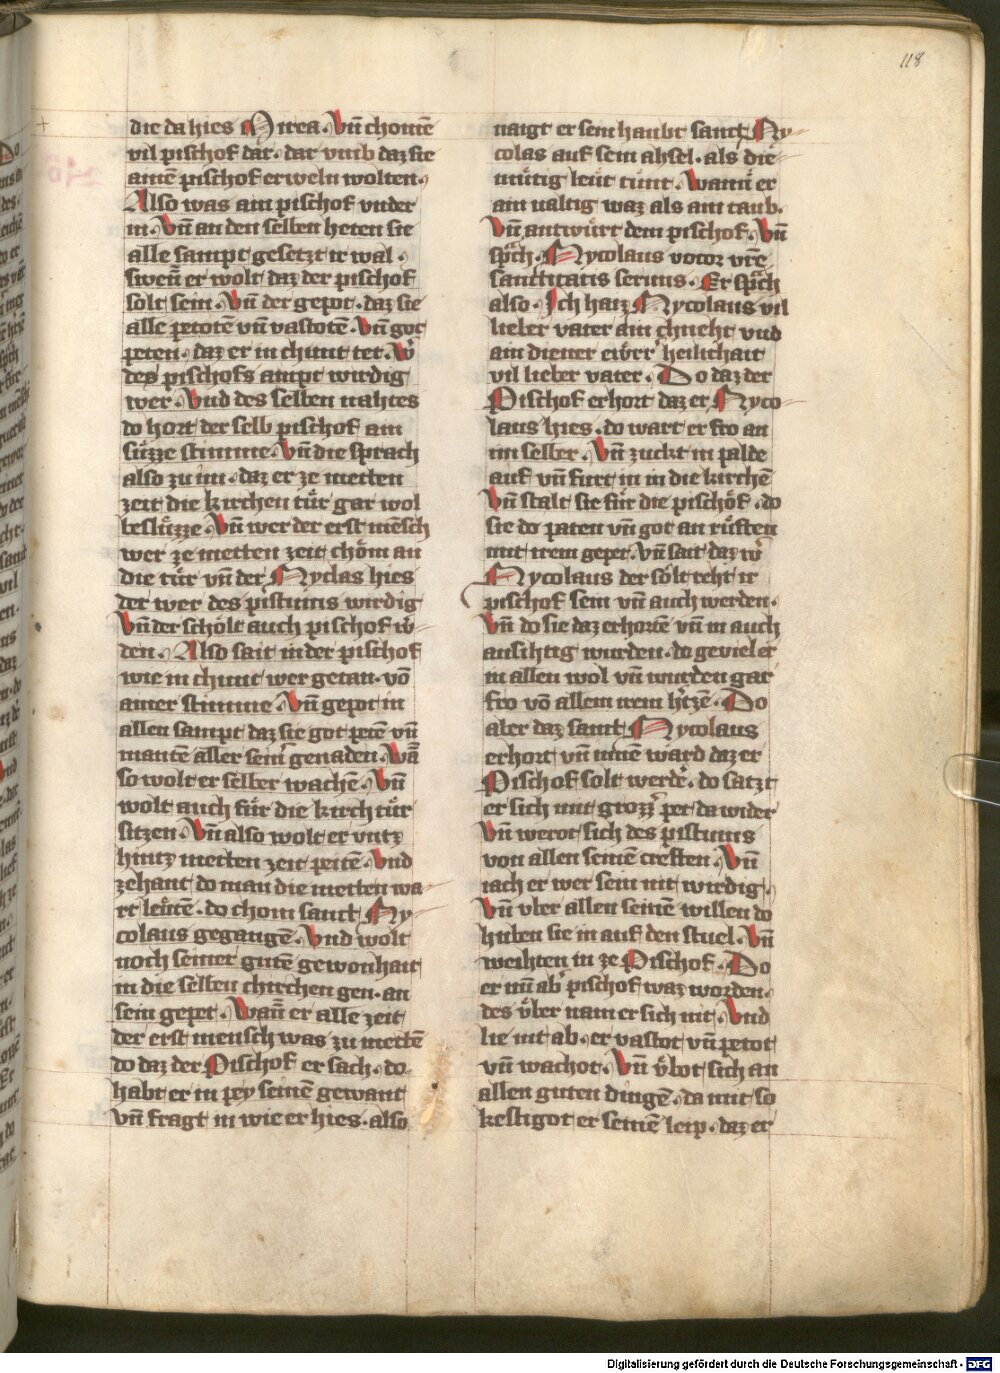 118
die da hies Mirea. Vn̄ chomē
vil pischof dar. dar vmb daz sie
ainē pischof erweln wolten.
Also was ain pischof vnder
in. Vn̄ an den selben heten sie
alle sampt gesetzt ir wal.
swen̄ er wolt daz der pischof
solt sein. Vn̄ der gepot. daz sie
alle petotē vn̄ vastotē. Vn̄ got
peten. daz er in chunt tet. w͛
des pischofs ampt wirdig
wer. Vnd des selben nahtes
do hort der selb pischof ain
sůzze stimme. Vn̄ die sprach
also zu im. daz er ze metten
zeit die kirchen tůr gar wol
beslůzze. Vn̄ wer der erst mēsch
wer ze metten zeit chöm an
die tůr vn̄ der Nyclas hies
der wer des pistums wirdig
Vn̄ der schölt auch pischof w͛-
den. Also sait in der pischof
wie in chunt wer getan. vō
ainer stimme. Vn̄ gepot in
allen sampt daz sie got petē vn̄
mantē aller sein͛ genaden. Wā
so wolt er selber wachē. Vn̄
wolt auch fůr die kirch tůr
sitzen. Vn̄ also wolt er vntz
hintz metten zeit peitē. Vnd
zehant do man die metten wa-
rt leůtē. do chom sanct Ny-
colaus gegangē. Vnd wolt
noch seiner gutē gewonhait
in die selben chirchen gen. an
sein gepet. Wan̄ er alle zeit
der erst mensch was zu mettē
do daz der Pischof er sach. do
habt er in pey seinē gewant
vn̄ fragt in wie er hies. also
naigt er sein haubt sanct Ny-
colas auf sein ahsel. als die
mütig leüt tünt. Wann er
ain ualtig waz als ain taub.
Vn̄ antwürt dem pischof. Vn̄
sp͛ch. Nycolaus votor vr̄e
sanctitatis seruus. Er sp͛ch
also. Ich haiz Nycolaus vil
lieber vater ain chneht vnd
ain diener ewerr heilichait
vil lieber vater. Do daz der
Pischof erhort daz er Nyco-
laus hies. do wart er fro an
im selber. Vn̄ zuckt in palde
auf vn̄ furt in in die kirchē
Vn̄ stalt sie fůr die pischöf. do
sie do paten vn̄ got an růften
mit irem gepet. Vn̄ sait daz w͛
Nycolaus der sölt reht ir
pischof sein vn̄ auch werden.
Vn̄ do sie daz erhortē vn̄ in auch
ansihtig wurden. do geviel er
in allen wol vn̄ wurden gar
fro vō allem irem h͛tzē. Do
aber daz sanct Nycolaus
erhort vn̄ innē ward daz er
Pischof solt werdē. do satzt
er sich mit grozz͛ pet da wider
Vn̄ werot sich des pistums
von allen seinē creften. Vn̄
iach er wer sein nit wirdig.
Vn̄ vber allen seinē willen do
huben sie in auf den stuel. Vn̄
weihten in ze Pischof. Do
er nū ab͛ pischof waz worden.
des vͤber nam er sich nit. Vnd
lie nit ab. er vastot vn̄ petot
vn̄ wachot. Vn̄ vͤbot sich an
allen guten dingē. da mit so
kestigot er seinē leip. daz er
Digitalisierung gefördert durch die Deutsche Forschungsgemeinschaft - DFG